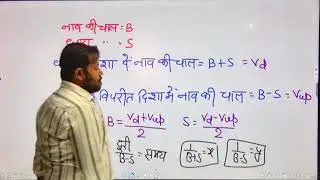 नाव की चाल = B
= S
दिशा में नाव की चाल = B+S = Vd
विपरीत दिशा में नाव की चाल = B-S = Vup
B = Vd+Vup/2 S = Vd-Vup/2
दूरी/B-S = समय 1/B+S = x 1/B-S = y